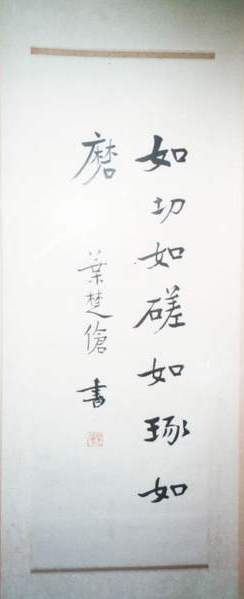 如切如磋如琢如
磨
葉楚傖書